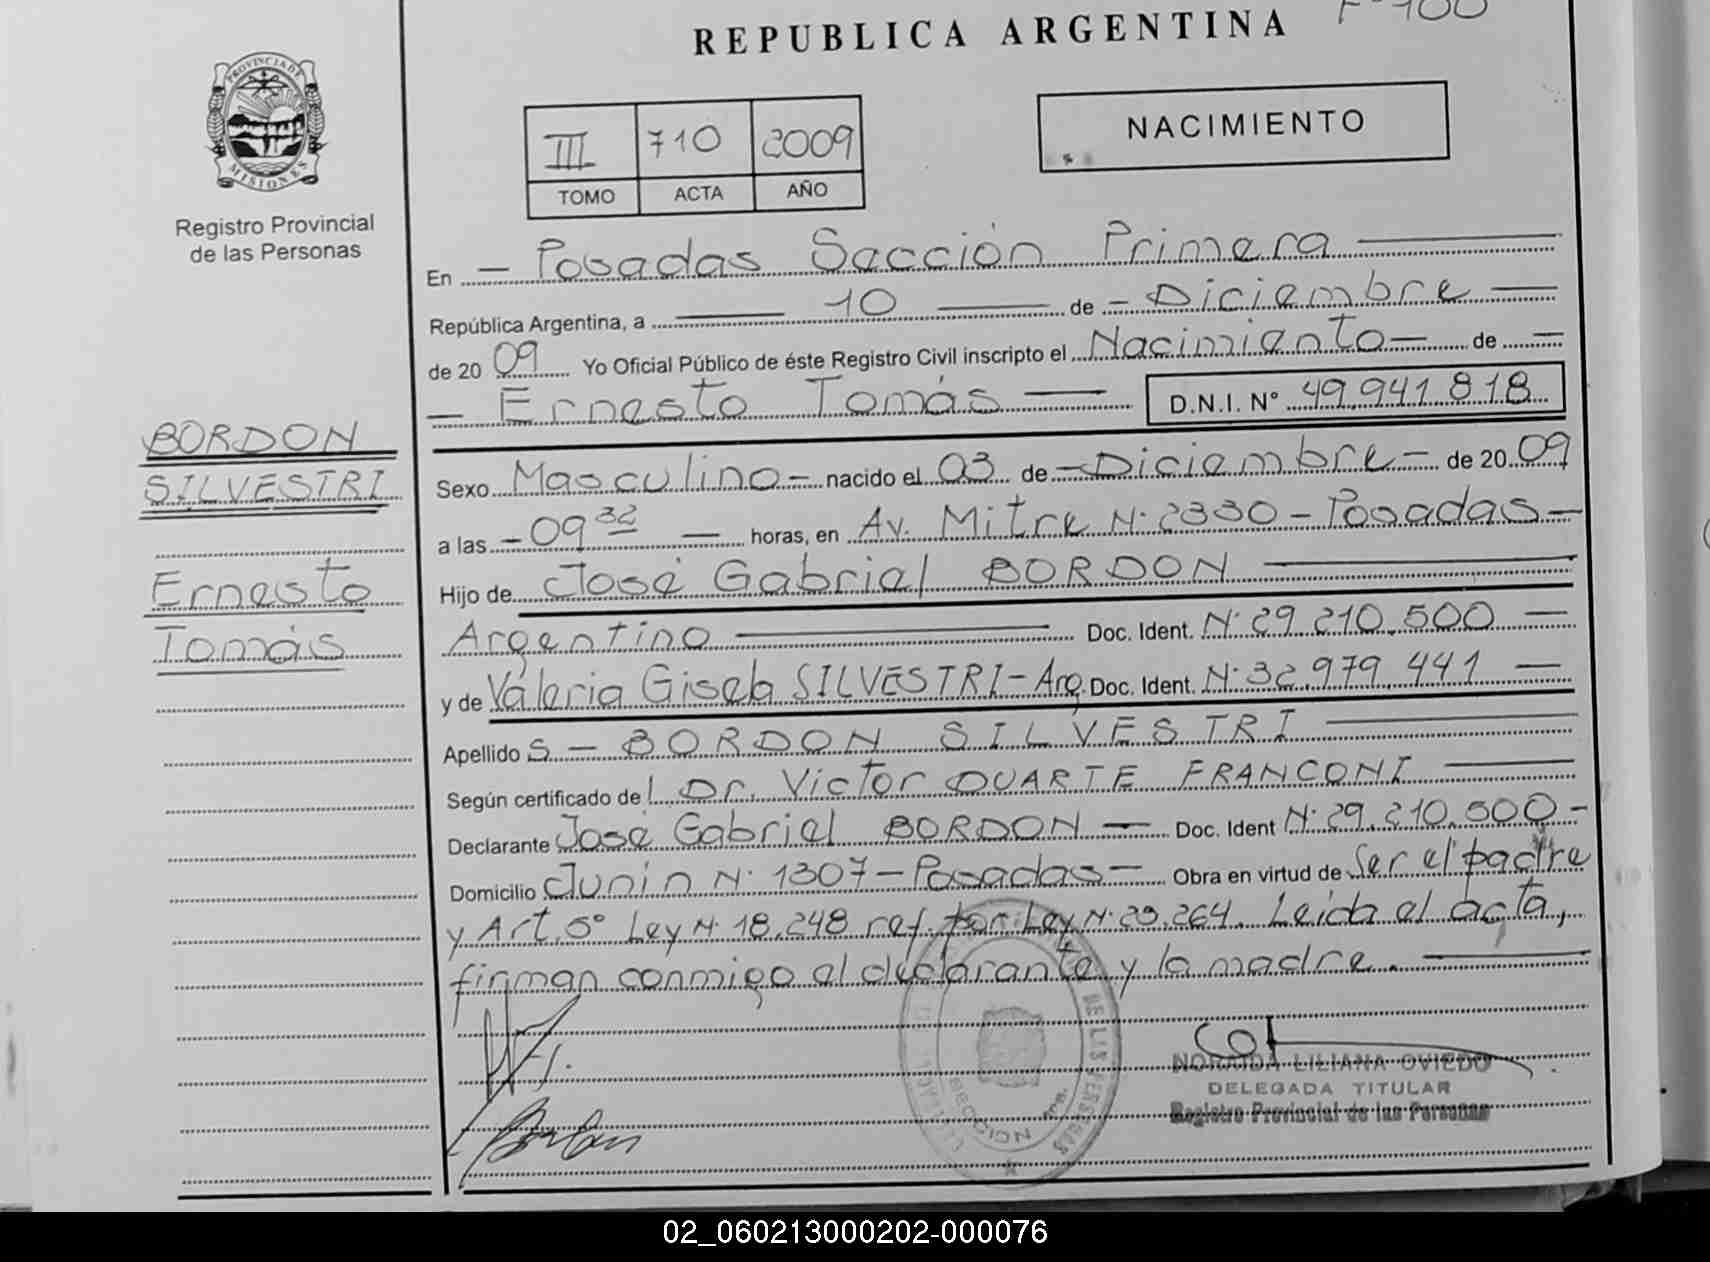 REPUBLICA ARGENTINA
Fº 100
PROVINCIA DE
MISIONES
Registro Provincial
de las Personas
III 710 2009
TOMO ACTA AÑO
NACIMIENTO
En - Posadas Sección Primera
República Argentina, a 10 de - Diciembre
de 20 09 Yo Oficial Público de éste Registro Civil inscripto el Nacimiento - de
- Ernesto Tomás D.N.I. Nº 49.941.818
BORDON
SILVESTRI
Ernesto
Tomás
Sexo Masculino - nacido el 03 de - Diciembre - de 20 09
a las - 09 32 - horas, en Av. Mitre Nº 2330 - Posadas -
Hijo de José Gabriel BORDON
Argentino Doc. Ident. Nº 29.210.500
y de Valeria Gisela SILVESTRI - Arg. Doc. Ident. Nº 32.979.441
Apellido S - BORDON SILVESTRI
Según certificado de l Dr. Victor DUARTE FRANCONI
Declarante José Gabriel BORDON - Doc. Ident Nº 29.210.500 -
Domicilio Junin Nº 1307 - Posadas - Obra en virtud de Ser el padre
y Art. 5º Ley Nº 18.248 ref. por Ley Nº 23.264. Leída el acta,
firman conmigo el declarante y la madre.
NORAIDA LILIANA OVIEDO
DELEGADA TITULAR
Registro Provincial de las Personas
02_060213000202-000076